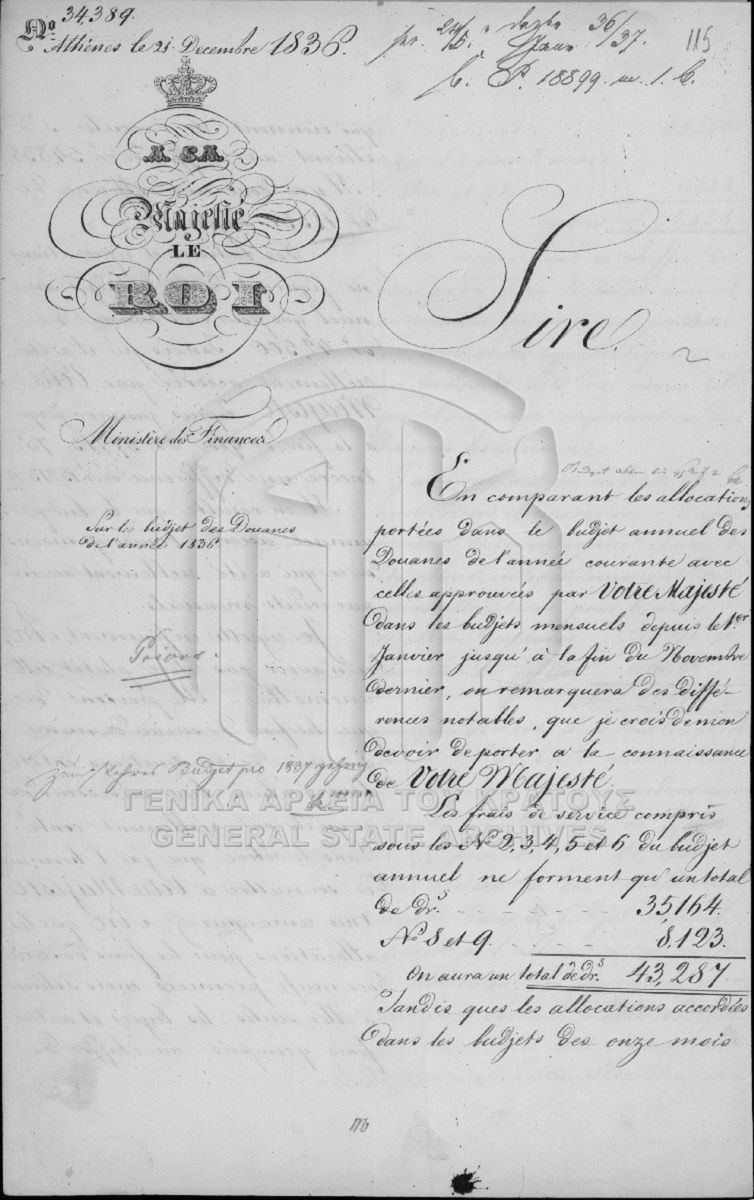 No. 34,389.
Athènes le 21 Decembre 1836.
36/37.
115
P. 18899
A SA
Majesté
LE
ROI
Sire.
Ministère des Finances
Sur le budjet des Douanes
de l'année 1836
En comparant les allocations
portées dans le budjet annuel des
Douanes de l'année courante avec
celles approuvées par Votre Majesté
dans les budjets mensuels depuis le 1.er
Janvier jusqu'à la fin de Novembre
dernier, on remarquera des diffé-
rences notables, que je crois de mon
devoir de porter a la connaissance
de Votre Majesté.
Budjet pro 1837
ΓΕΝΙΚΑ ΑΡΧΕΙΑ ΤΟΥ ΚΡΑΤΟΥΣ
GENERAL STATE ARCHIVES
Les frais de service compris
sous les No 2, 3, 4, 5 et 6 du budjet
annuel ne forment qu'un total
de drs. 35,164.
No 8 et 9. 8,123.
On aura un total de drs. 43,287.
Tandis ques les allocations accordées
dans les budjets des onze mois